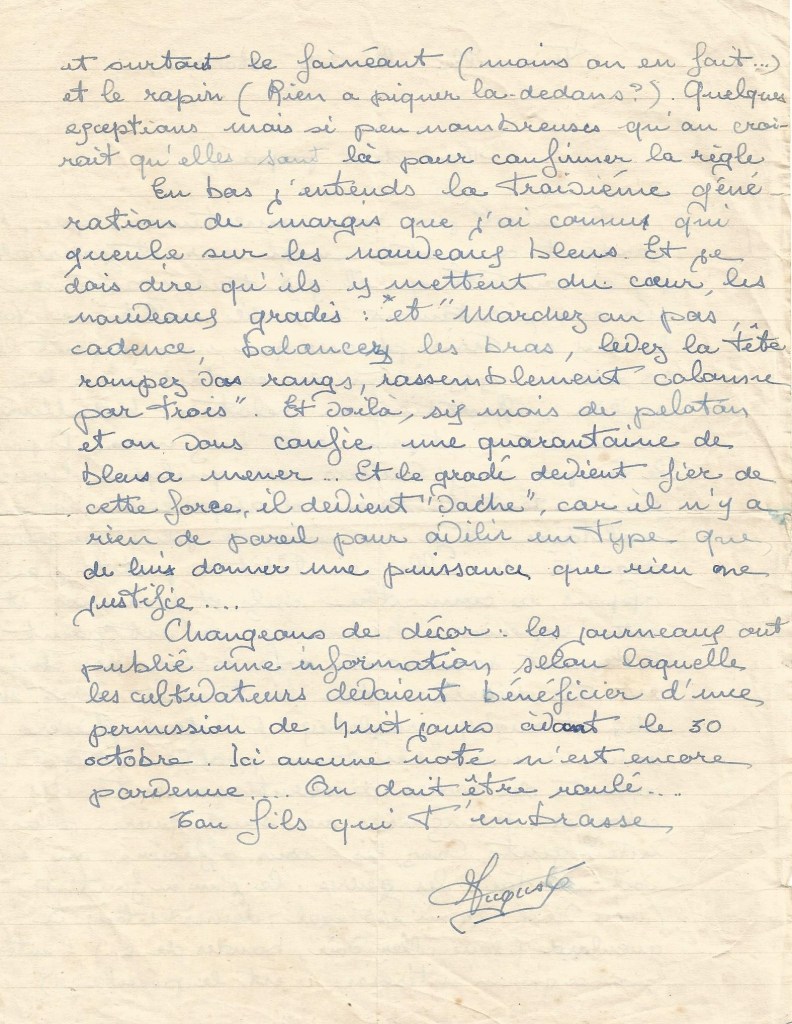 et surtout le fainéant (moins on en fait...)
et le rapin (Rien a piquer la-dedans?). Quelques
exceptions mais si peu nombreuses qu'on croi-
rait qu'elles sont là pour confirmer la règle
En bas j'entends la troisième géné
ration de margis que j'ai connus qui
gueule sur les nouveaux bleus. Et je
dois dire qu'ils y mettent du cœur, les
nouveaux gradés : et "Marchez au pas,
cadence, balancez les bras, levez la tête
rompez vos rangs, rassemblement colonne
par trois". Et voilà, six mois de peloton
et on vous confie une quarantaine de
bleus a mener... Et le gradé devient fier de
cette force, il devient "vache", car il n'y a
rien de pareil pour avilir un type que
de lui donner une puissance que rien ne
justifie....
Changeons de décor : les journeaux ont
publié une information selon laquelle
les cultivateurs devaient bénéficier d'une
permission de huit jours avant le 30
octobre. Ici aucune note n'est encore
parvenue.... On doit être roulé....
Ton fils qui t'embrasse
Auguste